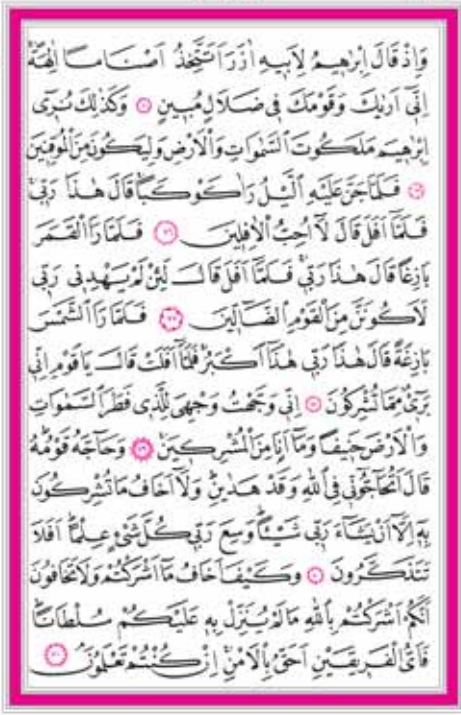 وَاِذْ قَالَ اِبْرٰهيمُ لِاَبيهِ اٰزَرَ اَتَتَّخِذُ اَصْنَامًا اٰلِهَةً
اِنّى اَرٰيكَ وَقَوْمَكَ فى ضَلَالٍ مُبينٍ وَكَذٰلِكَ نُرى
اِبْرٰهيمَ مَلَكُوتَ السَّمٰوَاتِ وَالْاَرْضِ وَلِيَكُونَ مِنَ الْمُوقِنينَ
فَلَمَّا جَنَّ عَلَيْهِ الَّيْلُ رَاٰ كَوْكَبًا قَالَ هٰذَا رَبّى
فَلَمَّا اَفَلَ قَالَ لَا اُحِبُّ الْاٰفِلينَ فَلَمَّا رَاَ الْقَمَرَ
بَازِغًا قَالَ هٰذَا رَبّى فَلَمَّا اَفَلَ قَالَ لَئِنْ لَمْ يَهْدِنى رَبّى
لَاَكُونَنَّ مِنَ الْقَوْمِ الضَّالّينَ فَلَمَّا رَاَ الشَّمْسَ
بَازِغَةً قَالَ هٰذَا رَبّى هٰذَا اَكْبَرُ فَلَمَّا اَفَلَتْ قَالَ يَا قَوْمِ اِنّى
بَرىءٌ مِمَّا تُشْرِكُونَ اِنّى وَجَّهْتُ وَجْهِىَ لِلَّذى فَطَرَ السَّمٰوَاتِ
وَالْاَرْضَ حَنيفًا وَمَا اَنَا مِنَ الْمُشْرِكينَ وَحَاجَّهُ قَوْمُهُ
قَالَ اَتُحَاجُّونّى فِى اللّٰهِ وَقَدْ هَدٰينِ وَلَا اَخَافُ مَا تُشْرِكُونَ
بِهِ اِلَّا اَنْ يَشَاءَ رَبّى شَيْئًا وَسِعَ رَبّى كُلَّ شَىْءٍ عِلْمًا اَفَلَا
تَتَذَكَّرُونَ وَكَيْفَ اَخَافُ مَا اَشْرَكْتُمْ وَلَا تَخَافُونَ
اَنَّكُمْ اَشْرَكْتُمْ بِاللّٰهِ مَا لَمْ يُنَزِّلْ بِهِ عَلَيْكُمْ سُلْطَانًا
فَاَىُّ الْفَريقَيْنِ اَحَقُّ بِالْاَمْنِ اِنْ كُنْتُمْ تَعْلَمُونَ